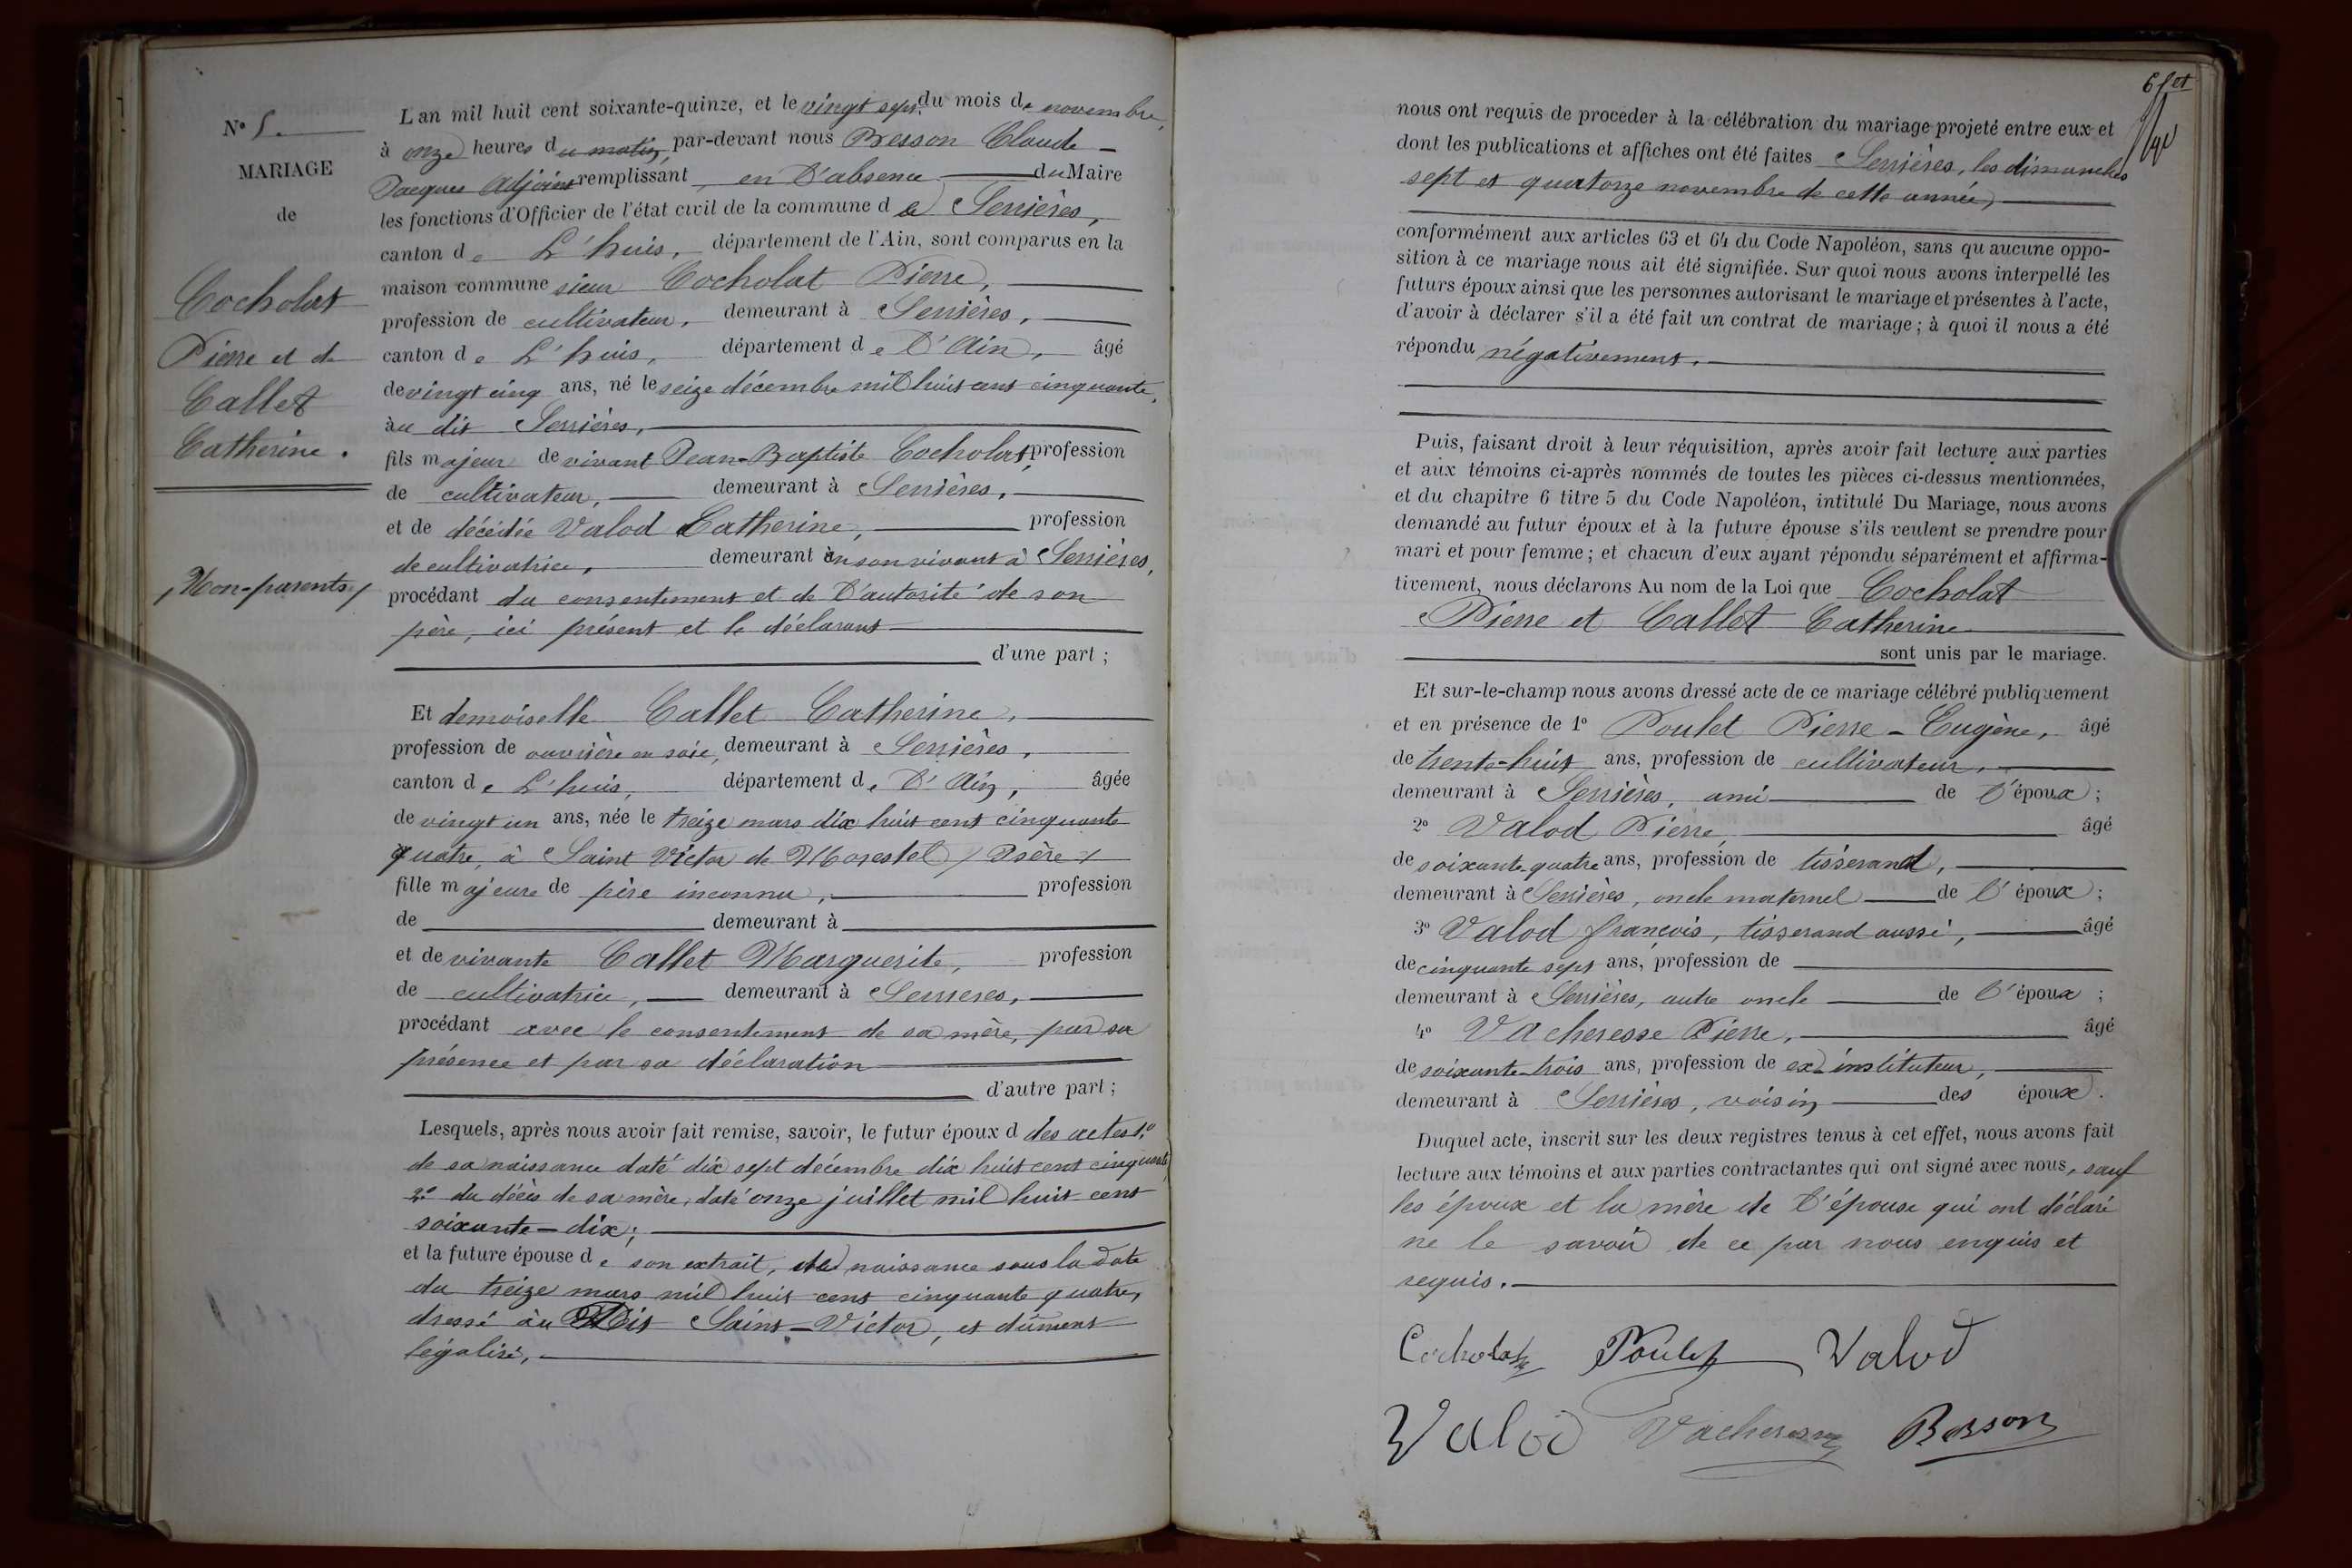 N° 5.
MARIAGE
de
Cocholat
Pierre et de
Callet
Catherine.
/Non-parents/
L'an mil huit cent soixante-quinze, et le vingt sept du mois de novembre,
à onze heures du matin, par-devant nous Besson Claude-
Jacques Adjoint remplissant en l'absence du Maire
les fonctions d'Officier de l'état civil de la commune de Serrières,
canton de L'huis, département de l'Ain, sont comparus en la
maison commune sieur Cocholat Pierre,
profession de cultivateur, demeurant à Serrières,
canton de L'huis, département de l'Ain, âgé
de vingt cinq ans, né le seize décembre mil huit cent cinquante,
àu dit Serrières,
fils majeur de vivant Jean-Baptiste Cocholat, profession
de cultivateur, demeurant à Serrières,
et de décédée Valod Catherine, profession
de cultivatrice, demeurant en son vivant à Serrières,
procédant du consentement et de l'autorité de son
père, ici présent et le déclarant
d'une part ;
Et demoiselle Callet Catherine,
profession de ouvrière en soie, demeurant à Serrières,
canton de L'huis, département de l'Ain, âgée
de vingt un ans, née le treize mars dix huit cent cinquante
quatre, à Saint Victor de Morestel / Isère /
fille majeure de père inconnu, profession
de demeurant à
et de vivante Callet Marguerite, profession
de cultivatrice, demeurant à Serrieres,
procédant avec le consentement de sa mère, par sa
présence et par sa déclaration
d'autre part ;
Lesquels, après nous avoir fait remise, savoir, le futur époux d des actes 1.°
de sa naissance daté dix sept décembre dix huit cent cinquante,
2.° du décès de sa mère, daté onze juillet mil huit cent
soixante-dix;
et la future épouse de son extrait, de naissance sous la date
du treize mars mil huit cent cinquante quatre,
dressé àu dit Saint-Victor, et dûment
légalisé,
nous ont requis de proceder à la célébration du mariage projeté entre eux et
dont les publications et affiches ont été faites Serrières, les dimanches
sept et quatorze novembre de cette année,
conformément aux articles 63 et 64 du Code Napoléon, sans qu'aucune oppo-
sition à ce mariage nous ait été signifiée. Sur quoi nous avons interpellé les
futurs époux ainsi que les personnes autorisant le mariage et présentes à l'acte,
d'avoir à déclarer s'il a été fait un contrat de mariage ; à quoi il nous a été
répondu négativement.
Puis, faisant droit à leur réquisition, après avoir fait lecture aux parties
et aux témoins ci-après nommés de toutes les pièces ci-dessus mentionnées,
et du chapitre 6 titre 5 du Code Napoléon, intitulé Du Mariage, nous avons
demandé au futur époux et à la future épouse s'ils veulent se prendre pour
mari et pour femme ; et chacun d'eux ayant répondu séparément et affirma-
tivement, nous déclarons Au nom de la Loi que Cocholat
Pierre et Callet Catherine
sont unis par le mariage.
Et sur-le-champ nous avons dressé acte de ce mariage célébré publiquement
et en présence de 1° Poulet Pierre-Eugène, âgé
de trente-huit ans, profession de cultivateur,
demeurant à Serrières, ami de l'époux ;
2° Valod Pierre, âgé
de soixante-quatre ans, profession de tisserand,
demeurant à Serrières, oncle maternel de l'époux ;
3° Valod françois, tisserand aussi, âgé
de cinquante sept ans, profession de
demeurant à Serrières, autre oncle de l'époux ;
4° Vacheresse Pierre, âgé
de soixante-trois ans, profession de ex-instituteur,
demeurant à Serrières, voisin des époux.
Duquel acte, inscrit sur les deux registres tenus à cet effet, nous avons fait
lecture aux témoins et aux parties contractantes qui ont signé avec nous, sauf
les époux et la mère de l'épouse qui ont déclaré
ne le savoir de ce par nous enquis et
requis.
Cocholat Poulet Valod
Valod Vacheresse Besson